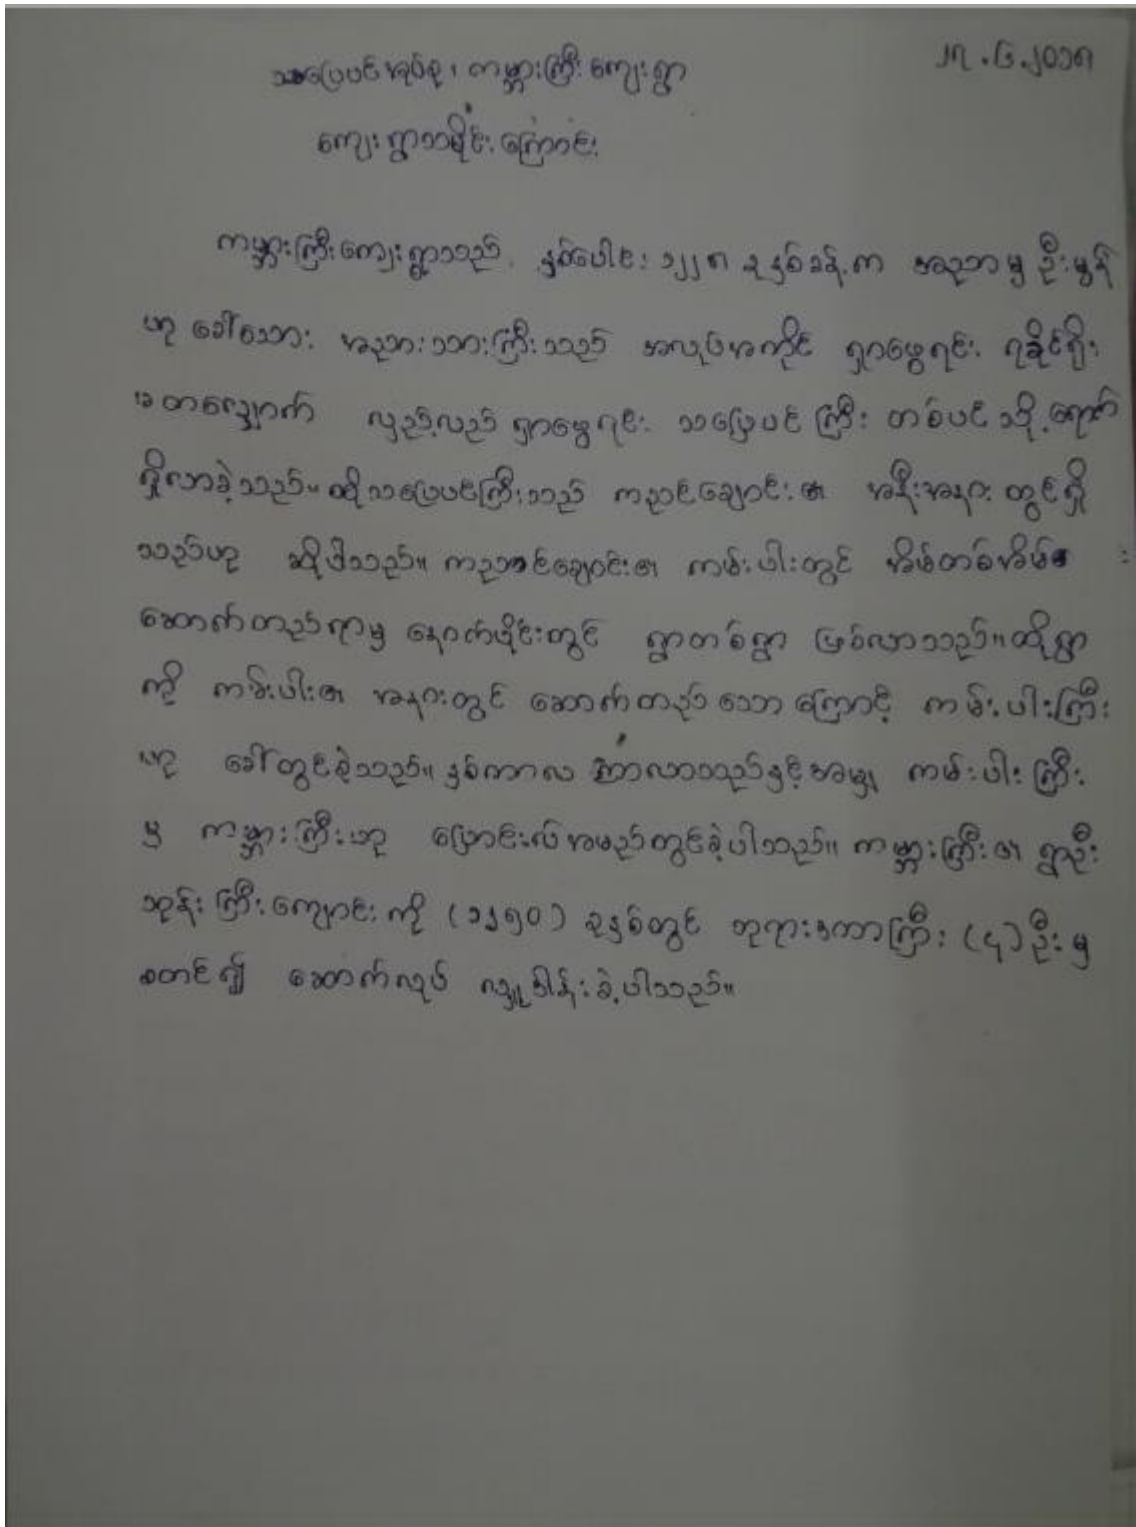 ၂၇.၆.၂၀၁၈
သပြေပင်အုပ်စု၊ ကမ္ဘားကြီးကျေးရွာ
ကျေးရွာသမိုင်းကြောင်း
ကမ္ဘားကြီးကျေးရွာသည် နှစ်ပေါင်း ၁၂၂၈ ခုနှစ်ခန့်က အညာမှ ဦးမွန်
ဟု ခေါ်သော အညာသားကြီးသည် အလုပ်အကိုင် ရှာဖွေရင်း ရခိုင်ရိုး
တလျှောက် လှည့်လည် ရှာဖွေရင်း သပြေပင်ကြီး တစ်ပင်သို့ ရောက်
ရှိလာခဲ့သည်။ ထိုသပြေပင်ကြီးသည် ကညင်ချောင်း၏ အနီးအနား တွင်ရှိ
သည်ဟု ဆိုပါသည်။ ကညင်ချောင်း၏ ကမ်းပါးတွင် အိမ်တစ်အိမ်
ဆောက်တည်ရာမှ နောက်ပိုင်းတွင် ရွာတစ်ရွာ ဖြစ်လာသည်။ ထိုရွာ
ကို ကမ်းပါး၏ အနားတွင် ဆောက်တည်သောကြောင့် ကမ်းပါးကြီး
ဟု ခေါ်တွင်ခဲ့သည်။ နှစ်ကာလ ကြာလာသည်နှင့်အမျှ ကမ်းပါးကြီး
မှ ကမ္ဘားကြီးဟု ပြောင်းလဲအမည်တွင်ခဲ့ပါသည်။ ကမ္ဘားကြီး၏ ရွာဦး
ဘုန်းကြီးကျောင်းကို (၁၃၅၀) ခုနှစ်တွင် ဘုရားဒကာကြီး (၄) ဦးမှ
စတင်၍ ဆောက်လုပ် လှူဒါန်းခဲ့ပါသည်။